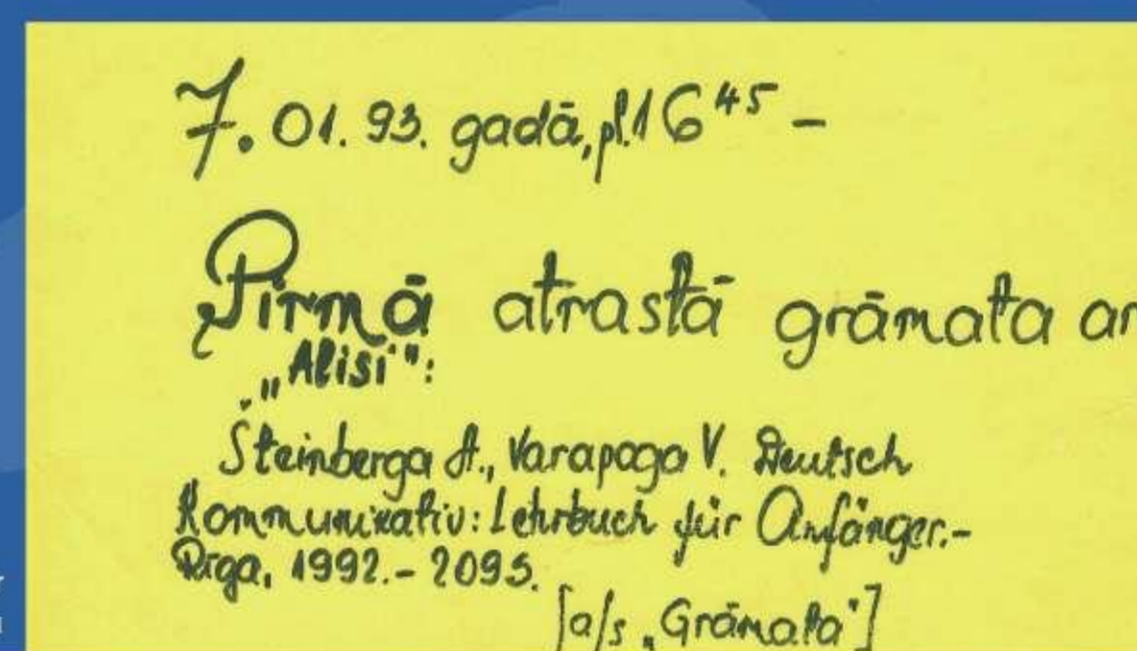 7. 01. 93. gadā, pl. 16⁴⁵ –
Pirmā atrastā grāmata ar
„Alisi":
Šteinberga A., Varapoga V. Deutsch
Kommunikativ: Lehrbuch für Anfänger.–
Rīga, 1992.– 209s.
[a/s „Grāmata"]